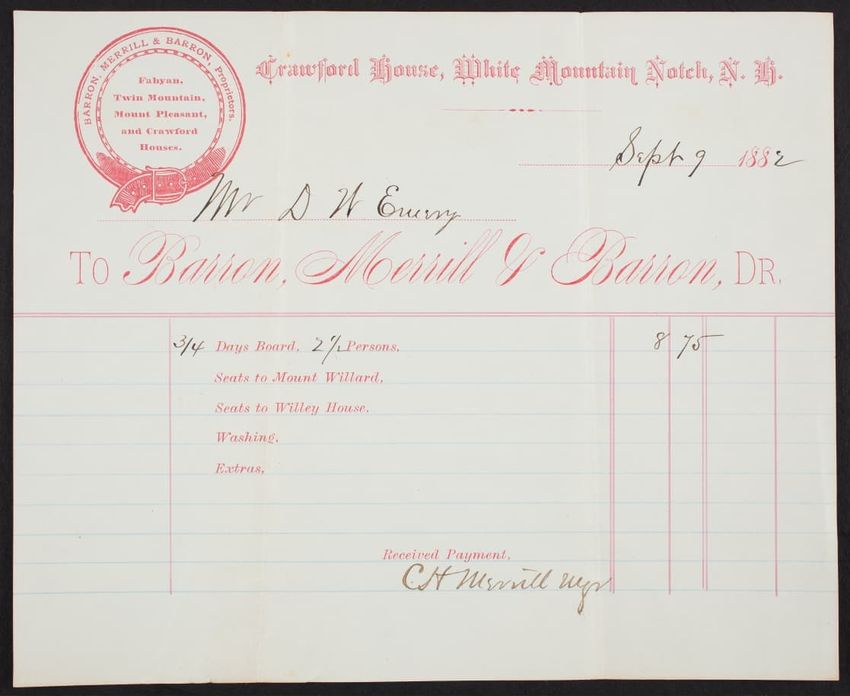 BARRON, MERRILL & BARRON, Proprietors.
Fabyan,
Twin Mountain,
Mount Pleasant,
and Crawford
Houses.
Crawford House, White Mountain Notch, N. H.
Sept 9 1882
Mr D W Emery
To Barron, Merrill & Barron, Dr.
3/4 Days Board, 2 1/2 Persons, 8 75
Seats to Mount Willard,
Seats to Willey House,
Washing,
Extras,
Received Payment,
C H Merrill Mgr